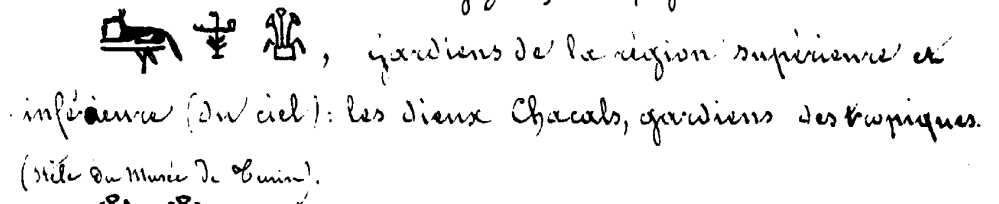 , gardiens de la région supérieure et
inférieure (du ciel): les dieux Chacals, gardiens des tropiques.
(Stèle du Musée de Turin).